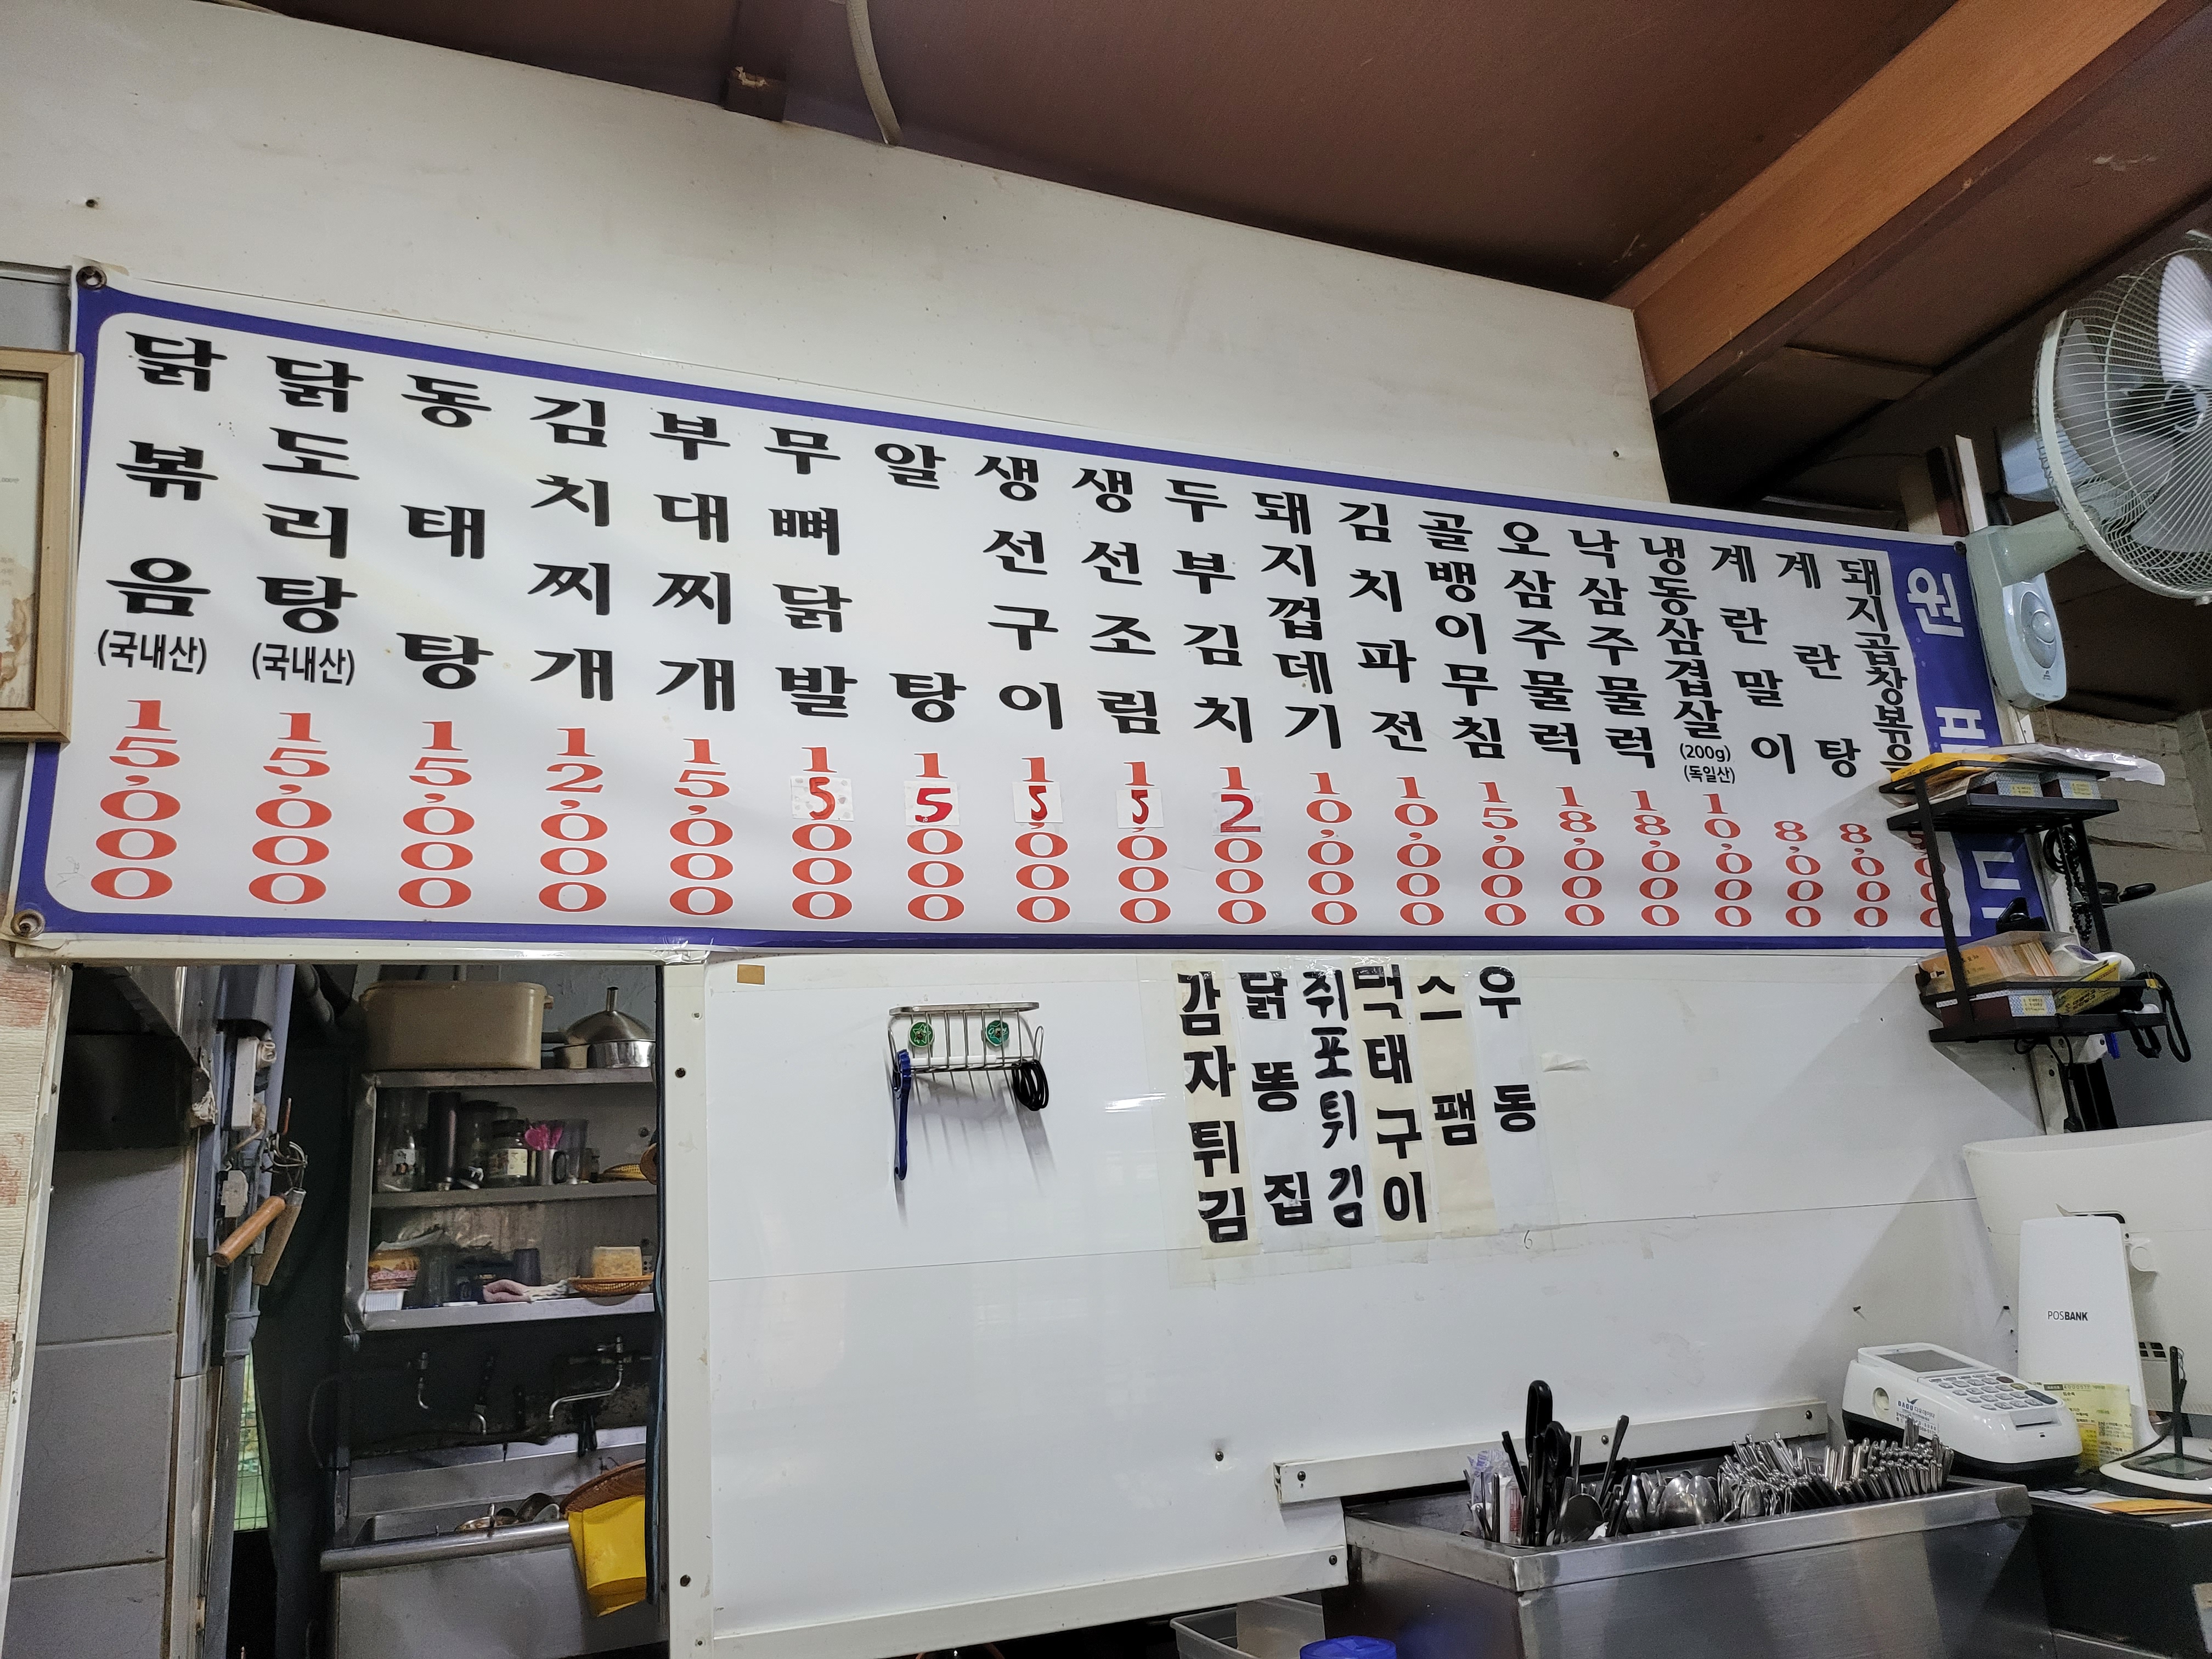 닭볶음 (국내산) 15,000
닭도리탕 (국내산) 15,000
동태탕 15,000
김치찌개 12,000
부대찌개 15,000
무뼈닭발 15,000
알탕 15,000
생선구이 15,000
생선조림 15,000
두부김치 12,000
돼지껍데기 10,000
김치파전 10,000
골뱅이무침 15,000
오삼주물럭 18,000
낙삼주물럭 18,000
냉동삼겹살 (200g) (독일산) 10,000
계란말이 8,000
계란탕 8,000
돼지곱창볶음
원
감자튀김
닭똥집
쥐포튀김
먹태구이
스팸
우동
POSBANK